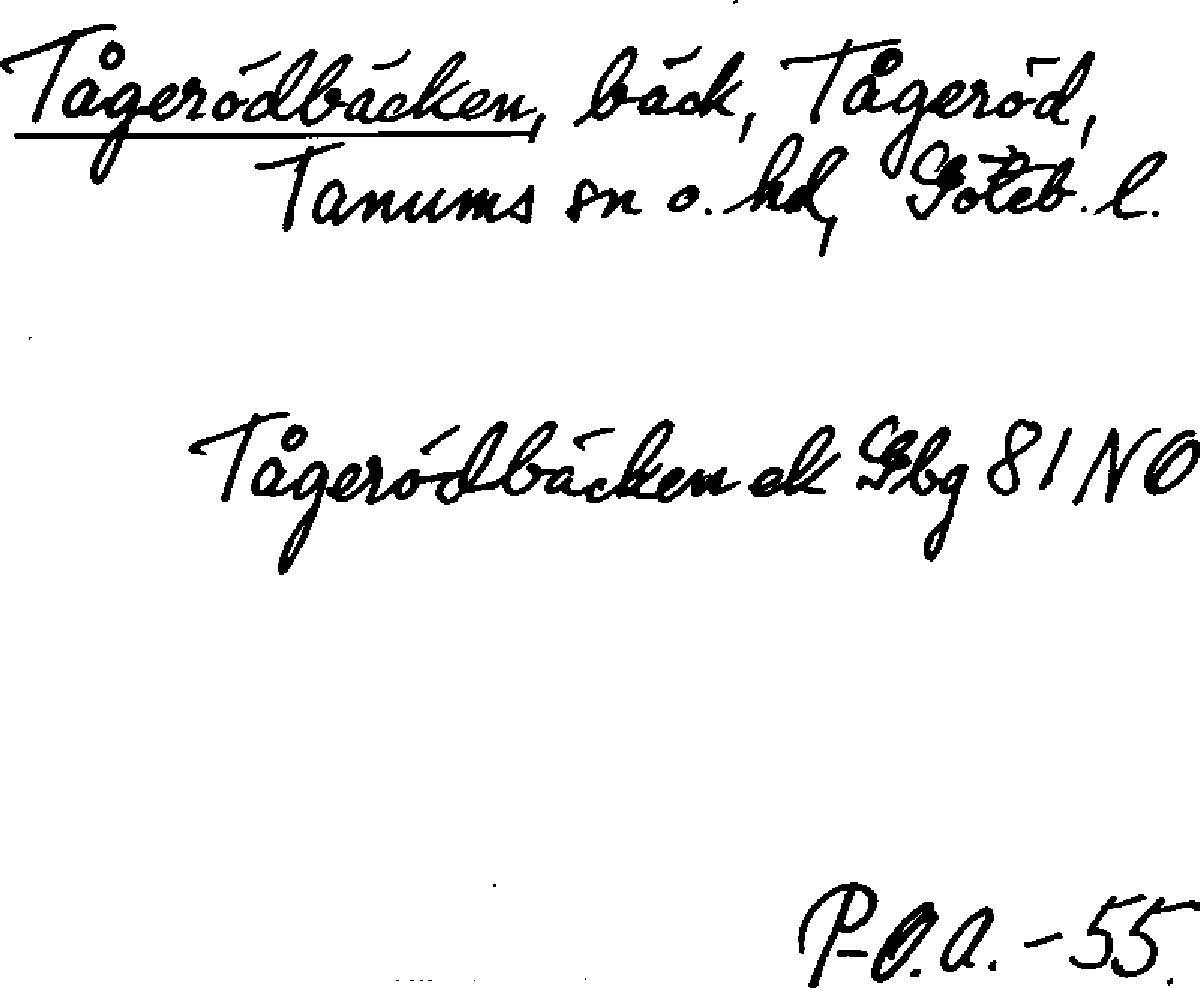 Tågerödbäcken, bäck, Tågeröd,
Tanums sn o. hd, Göteb. l.
Tågerödbäcken ek Gbg 81 NO
P-O.A. -55.